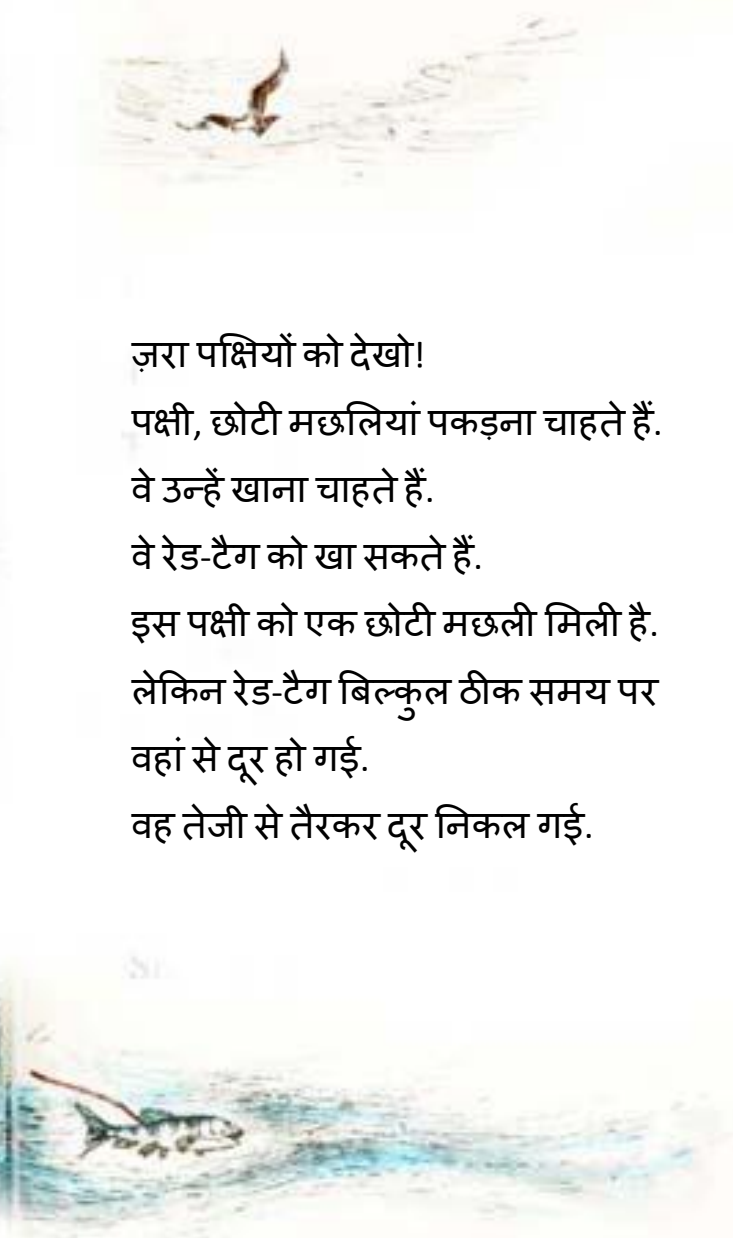 ज़रा पक्षियों को देखो!
पक्षी, छोटी मछलियां पकड़ना चाहते हैं.
वे उन्हें खाना चाहते हैं.
वे रेड-टैग को खा सकते हैं.
इस पक्षी को एक छोटी मछली मिली है.
लेकिन रेड-टैग बिल्कुल ठीक समय पर
वहां से दूर हो गई.
वह तेजी से तैरकर दूर निकल गई.